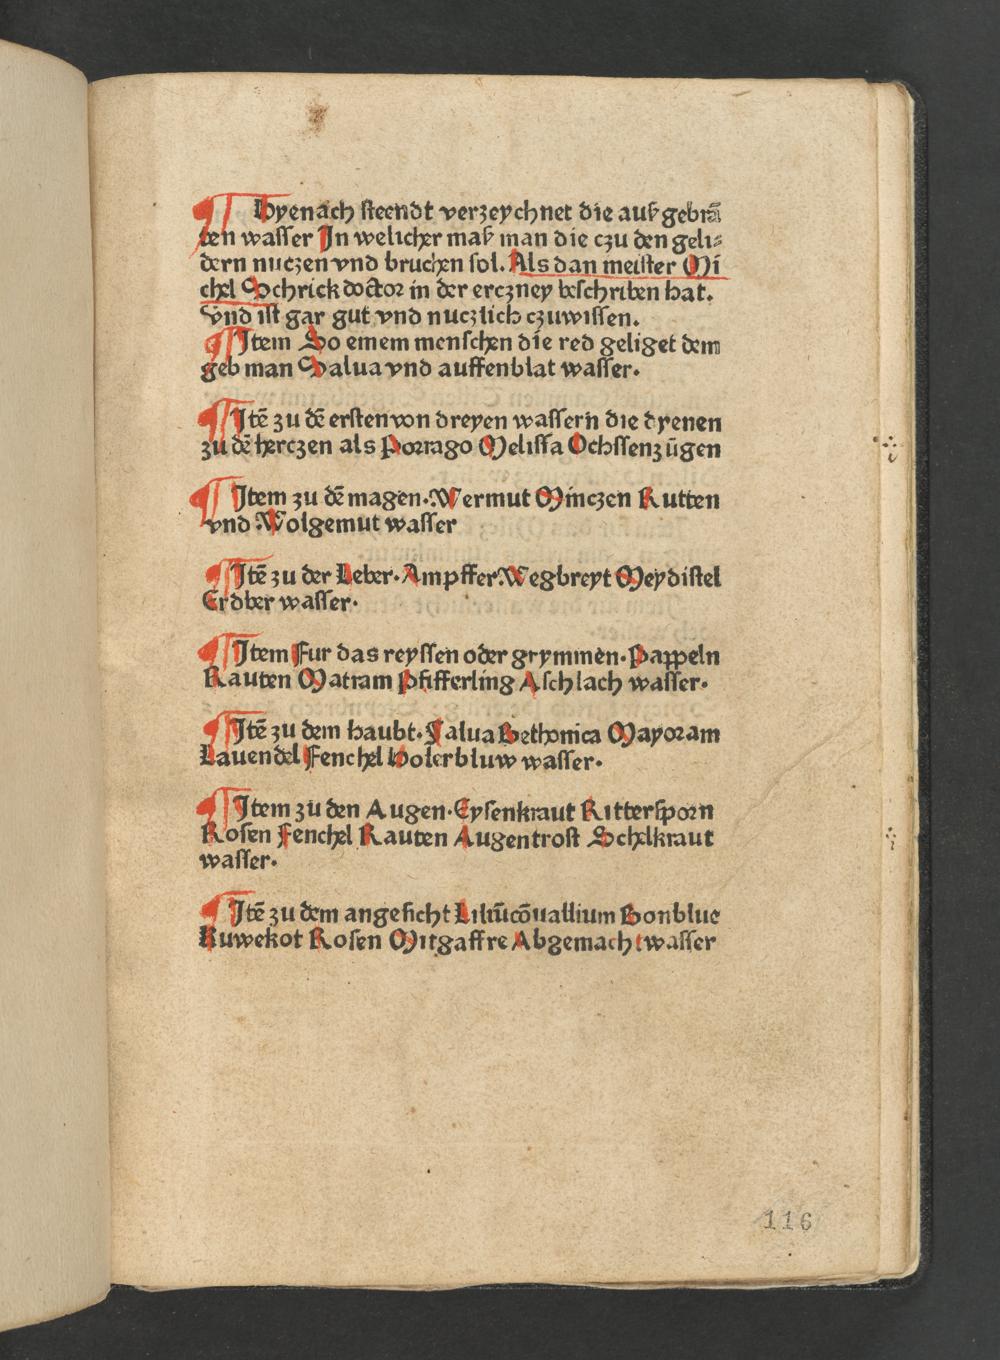 ¶ Hyenach steendt verzeychnet die auß gebrā
ten wasser In welicher maß man die czu den geli⸗
dern nuczen vnd bruchen sol. Als dan meister Mi
chel Schrick doctor in der erczney beschriben hat.
Vnd ist gar gut vnd nuczlich czuwissen.
¶ Item So einem menschen die red geliget dem
geb man Salua vnd auffenblat wasser.
¶ Itē zu dē ersten von dreyen wassern die dyenen
zu dē herczen als Porrago Melissa Ochssenzūgen
¶ Item zu dē magen. Wermut Minczen Rutten
vnd Wolgemut wasser
¶ Itē zu der Leber. Ampffer. Wegbreyt Meydistel
Erdber wasser.
¶ Item Fur das reyssen oder grymmen. Pappeln
Rauten Matram Pfifferling Aschlach wasser.
¶ Itē zu dem haubt. Salua Bethonica Mayoram
Lauendel Fenchel Holerbluw wasser.
¶ Item zu den Augen. Eysenkraut Rittersporn
Rosen Fenchel Rauten Augentrost Schelkraut
wasser.
¶ Itē zu dem angesicht Liliūcōuallium Bonblue
Kuwekot Rosen Mitgaffre Abgemacht wasser
116